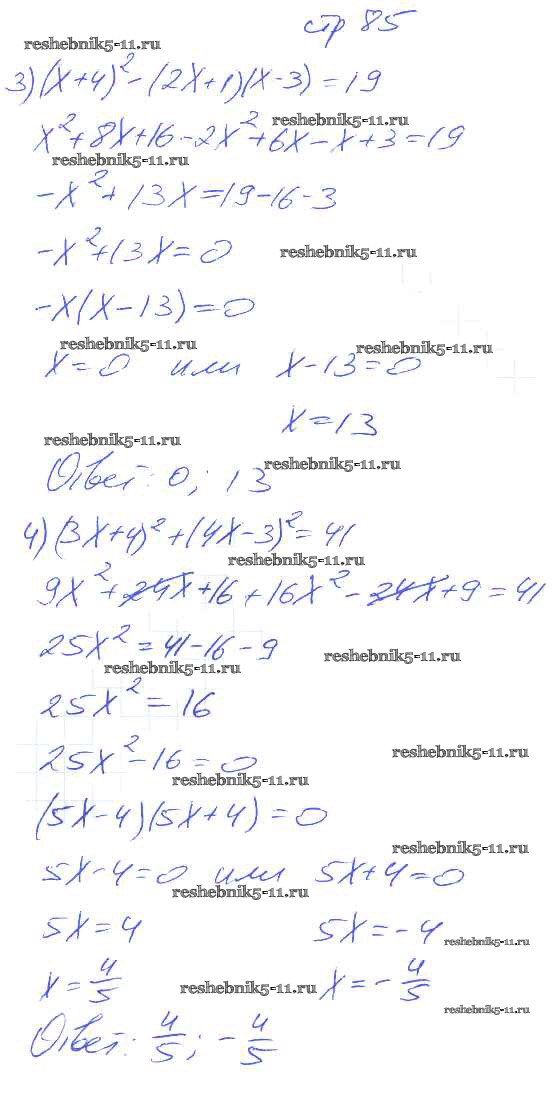 стр 85
reshebnik5-11.ru
3) (x+4)² - (2x+1)(x-3) = 19
reshebnik5-11.ru
x² + 8x + 16 - 2x² + 6x - x + 3 = 19
reshebnik5-11.ru
-x² + 13x = 19 - 16 - 3
-x² + 13x = 0
reshebnik5-11.ru
-x(x - 13) = 0
reshebnik5-11.ru
reshebnik5-11.ru
x = 0 или x - 13 = 0
x = 13
reshebnik5-11.ru
reshebnik5-11.ru
Ответ: 0; 13
4) (3x+4)² + (4x-3)² = 41
reshebnik5-11.ru
9x² + 24x + 16 + 16x² - 24x + 9 = 41
25x² = 41 - 16 - 9
reshebnik5-11.ru
reshebnik5-11.ru
25x² = 16
25x² - 16 = 0
reshebnik5-11.ru
reshebnik5-11.ru
(5x - 4)(5x + 4) = 0
reshebnik5-11.ru
5x - 4 = 0 или 5x + 4 = 0
reshebnik5-11.ru
5x = 4 5x = -4
reshebnik5-11.ru
x = 4/5 x = -4/5
reshebnik5-11.ru
reshebnik5-11.ru
Ответ: 4/5; -4/5